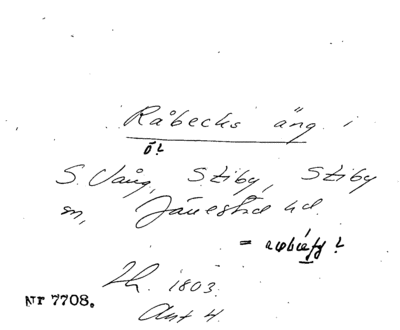 Råbecks äng i
ö?
S. Vång, S. Ziby, S Ziby
sn, Järrestad hd.
= ?
Th. 1803.
Akt 4.
Nr 7708.